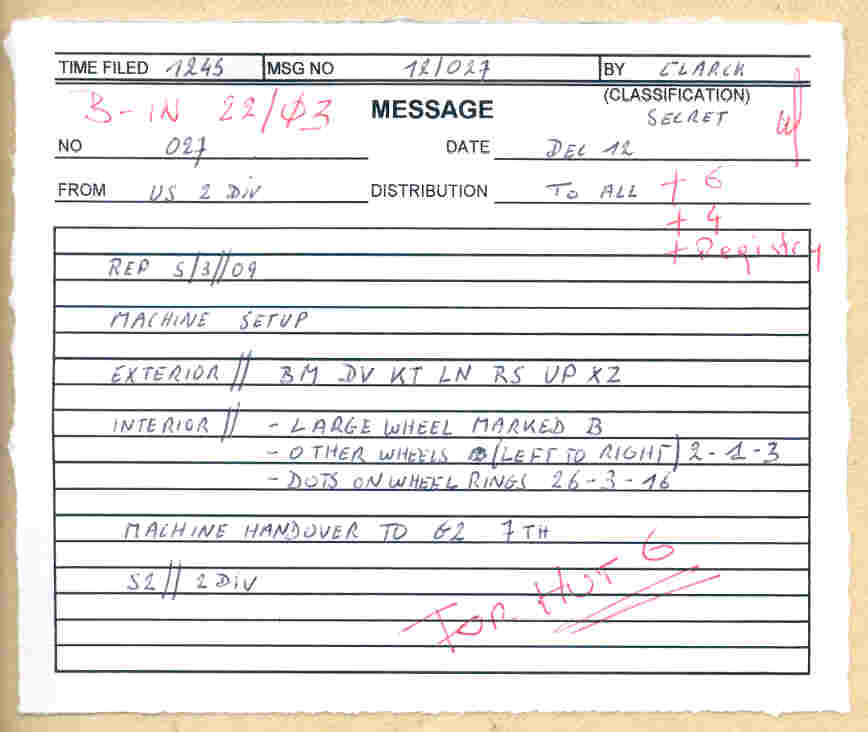 TIME FILED 1245 MSG NO 12/027 BY CLARCK
B-IN 22/Ø3 MESSAGE (CLASSIFICATION)
SECRET
NO 027 DATE DEC 12
FROM US 2 DIV DISTRIBUTION TO ALL + 6
+ 4
+ Registry
REP 5/3//09
MACHINE SETUP
EXTERIOR // BM DV KT LN RS UP XZ
INTERIOR // - LARGE WHEEL MARKED B
- OTHER WHEELS (LEFT TO RIGHT) 2-1-3
- DOTS ON WHEEL RINGS 26-3-16
MACHINE HANDOVER TO G2 7TH
S2// 2 DIV
FOR HUT 6